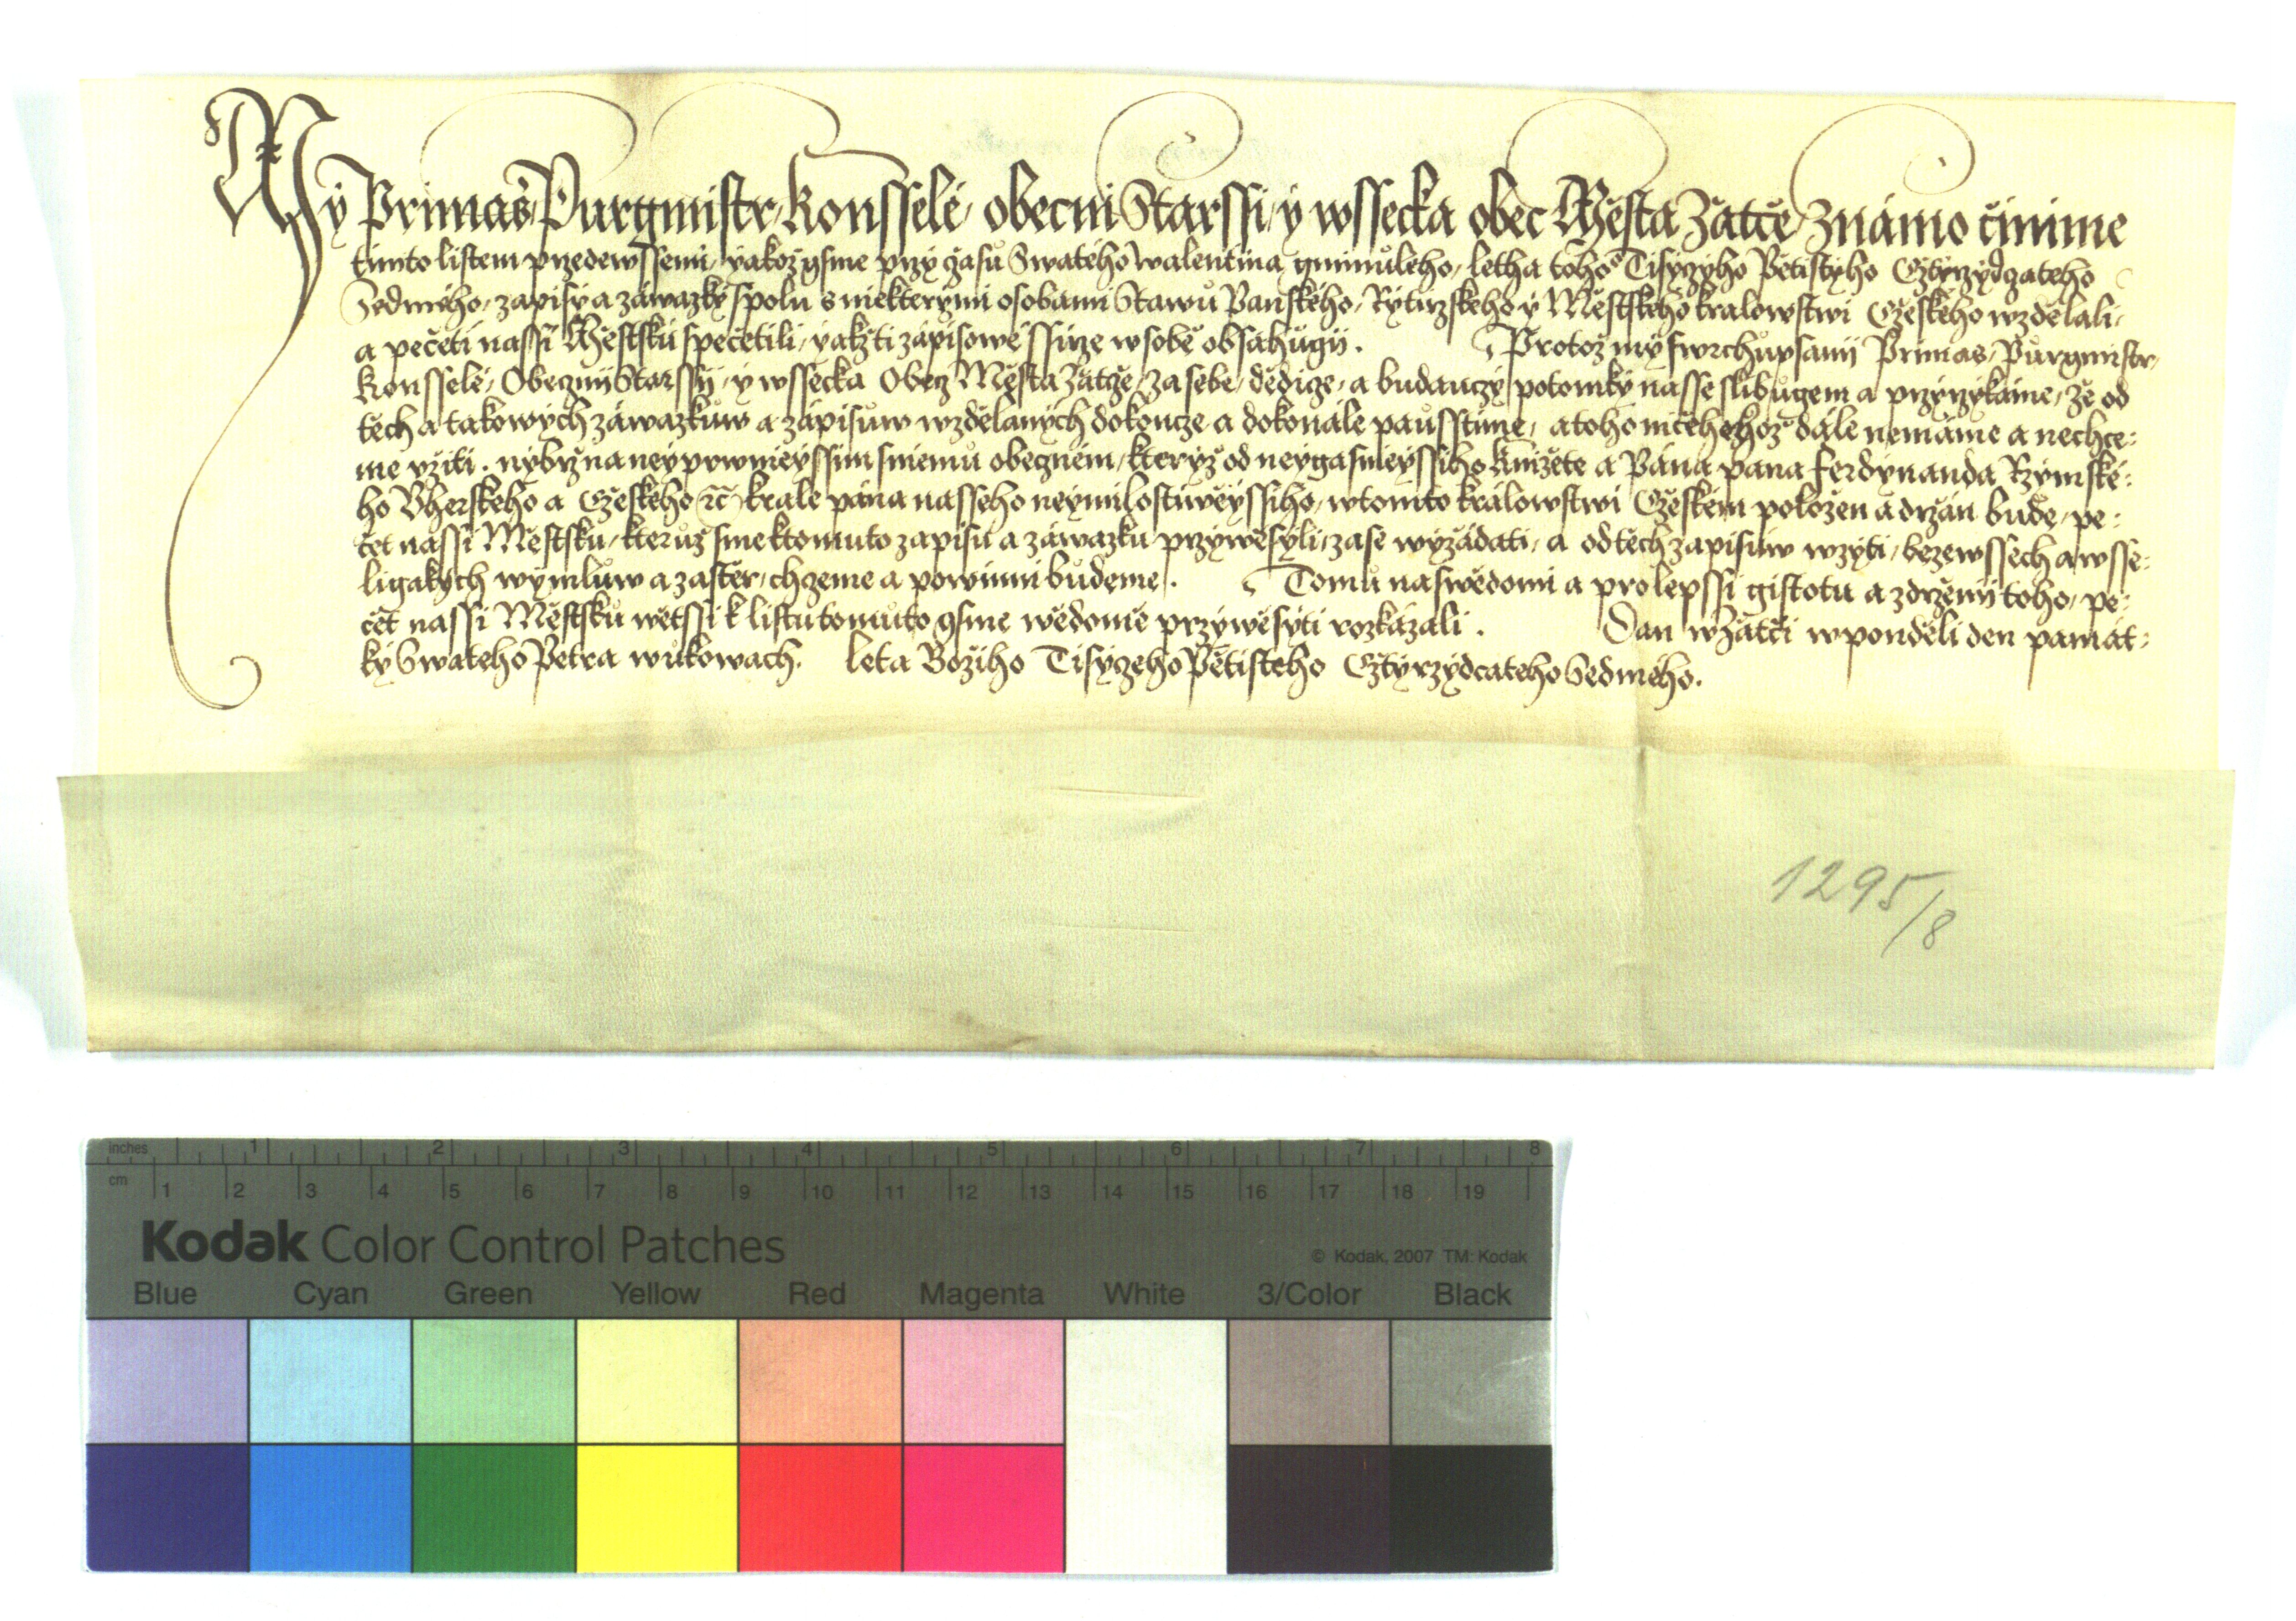 My Primas, Purgmistr, Konsselé, obecni Starssi, y wssecka obec Města Žatče, Známo činime
timto listem przedewssemi, yakož gsme przy čzasu Swatého Walentina gminuleho, letha tohó Tisyczyho Pětistyho Cžtyrzydczateho
Sedmého, zapisy a záwazky spolu s niekterymi osobami Stawů Panského, Rytirzskeho y Městskeho kralowstwi Cžeskeho wzdělali,
a pečeti nassi Městskú spečetili, yakžti zápisowé ssirze w sobě obsahugii. Protož my swrchupsanii Primas, Purgmistr,
Konsselé, Obecznii Starssii, y wssecka Obecz Města Žatcže, za sebe, dědicze, a budauczy potomky nasse slibugem a przyrzykáme, že od
těch a takowych záwazkuw a zápisuw wzdělanych dokoncze a dokonále paustime, a toho ničehehož dále nemáme a nechce:
me vžiti. nybrž na neyprwnieyssim sniemu obeczném, kteryž od neygasnieyssiho Knižete a Pána pana Ferdynanda Rzymské:
ho Vherskeho a Cžeskeho ꝛc̃ krale pána nasseho neymilostiwěyssiho, w tomto králowstwi Cžeském položen a držán bude, pe:
čet nassi Městsku, kteruž sme k tomuto zapisu a záwazku przywěsyli, zase wyžádati, a od těch zapisuw wzyti, beze wssech a wsse:
ligakych wymluw a zastěr, chczeme a powinni budeme. Tomu na swědomi a pro lepssi gistotu a zdrženii toho, pe:
čět nassi Městsku wětssi k listu tomuto gsme wědomě przywěsyti rozkázali. Dan w Žatči w ponděli den památ:
ky Swateho Petra w ukowach. Leta Božiho Tisyczeho Pětisteho Cžtyrzydcateho Sedmého.
1295/8
inches 1 2 3 4 5 6 7 8
cm 1 2 3 4 5 6 7 8 9 10 11 12 13 14 15 16 17 18 19
Kodak Color Control Patches © Kodak, 2007 TM: Kodak
Blue Cyan Green Yellow Red Magenta White 3/Color Black